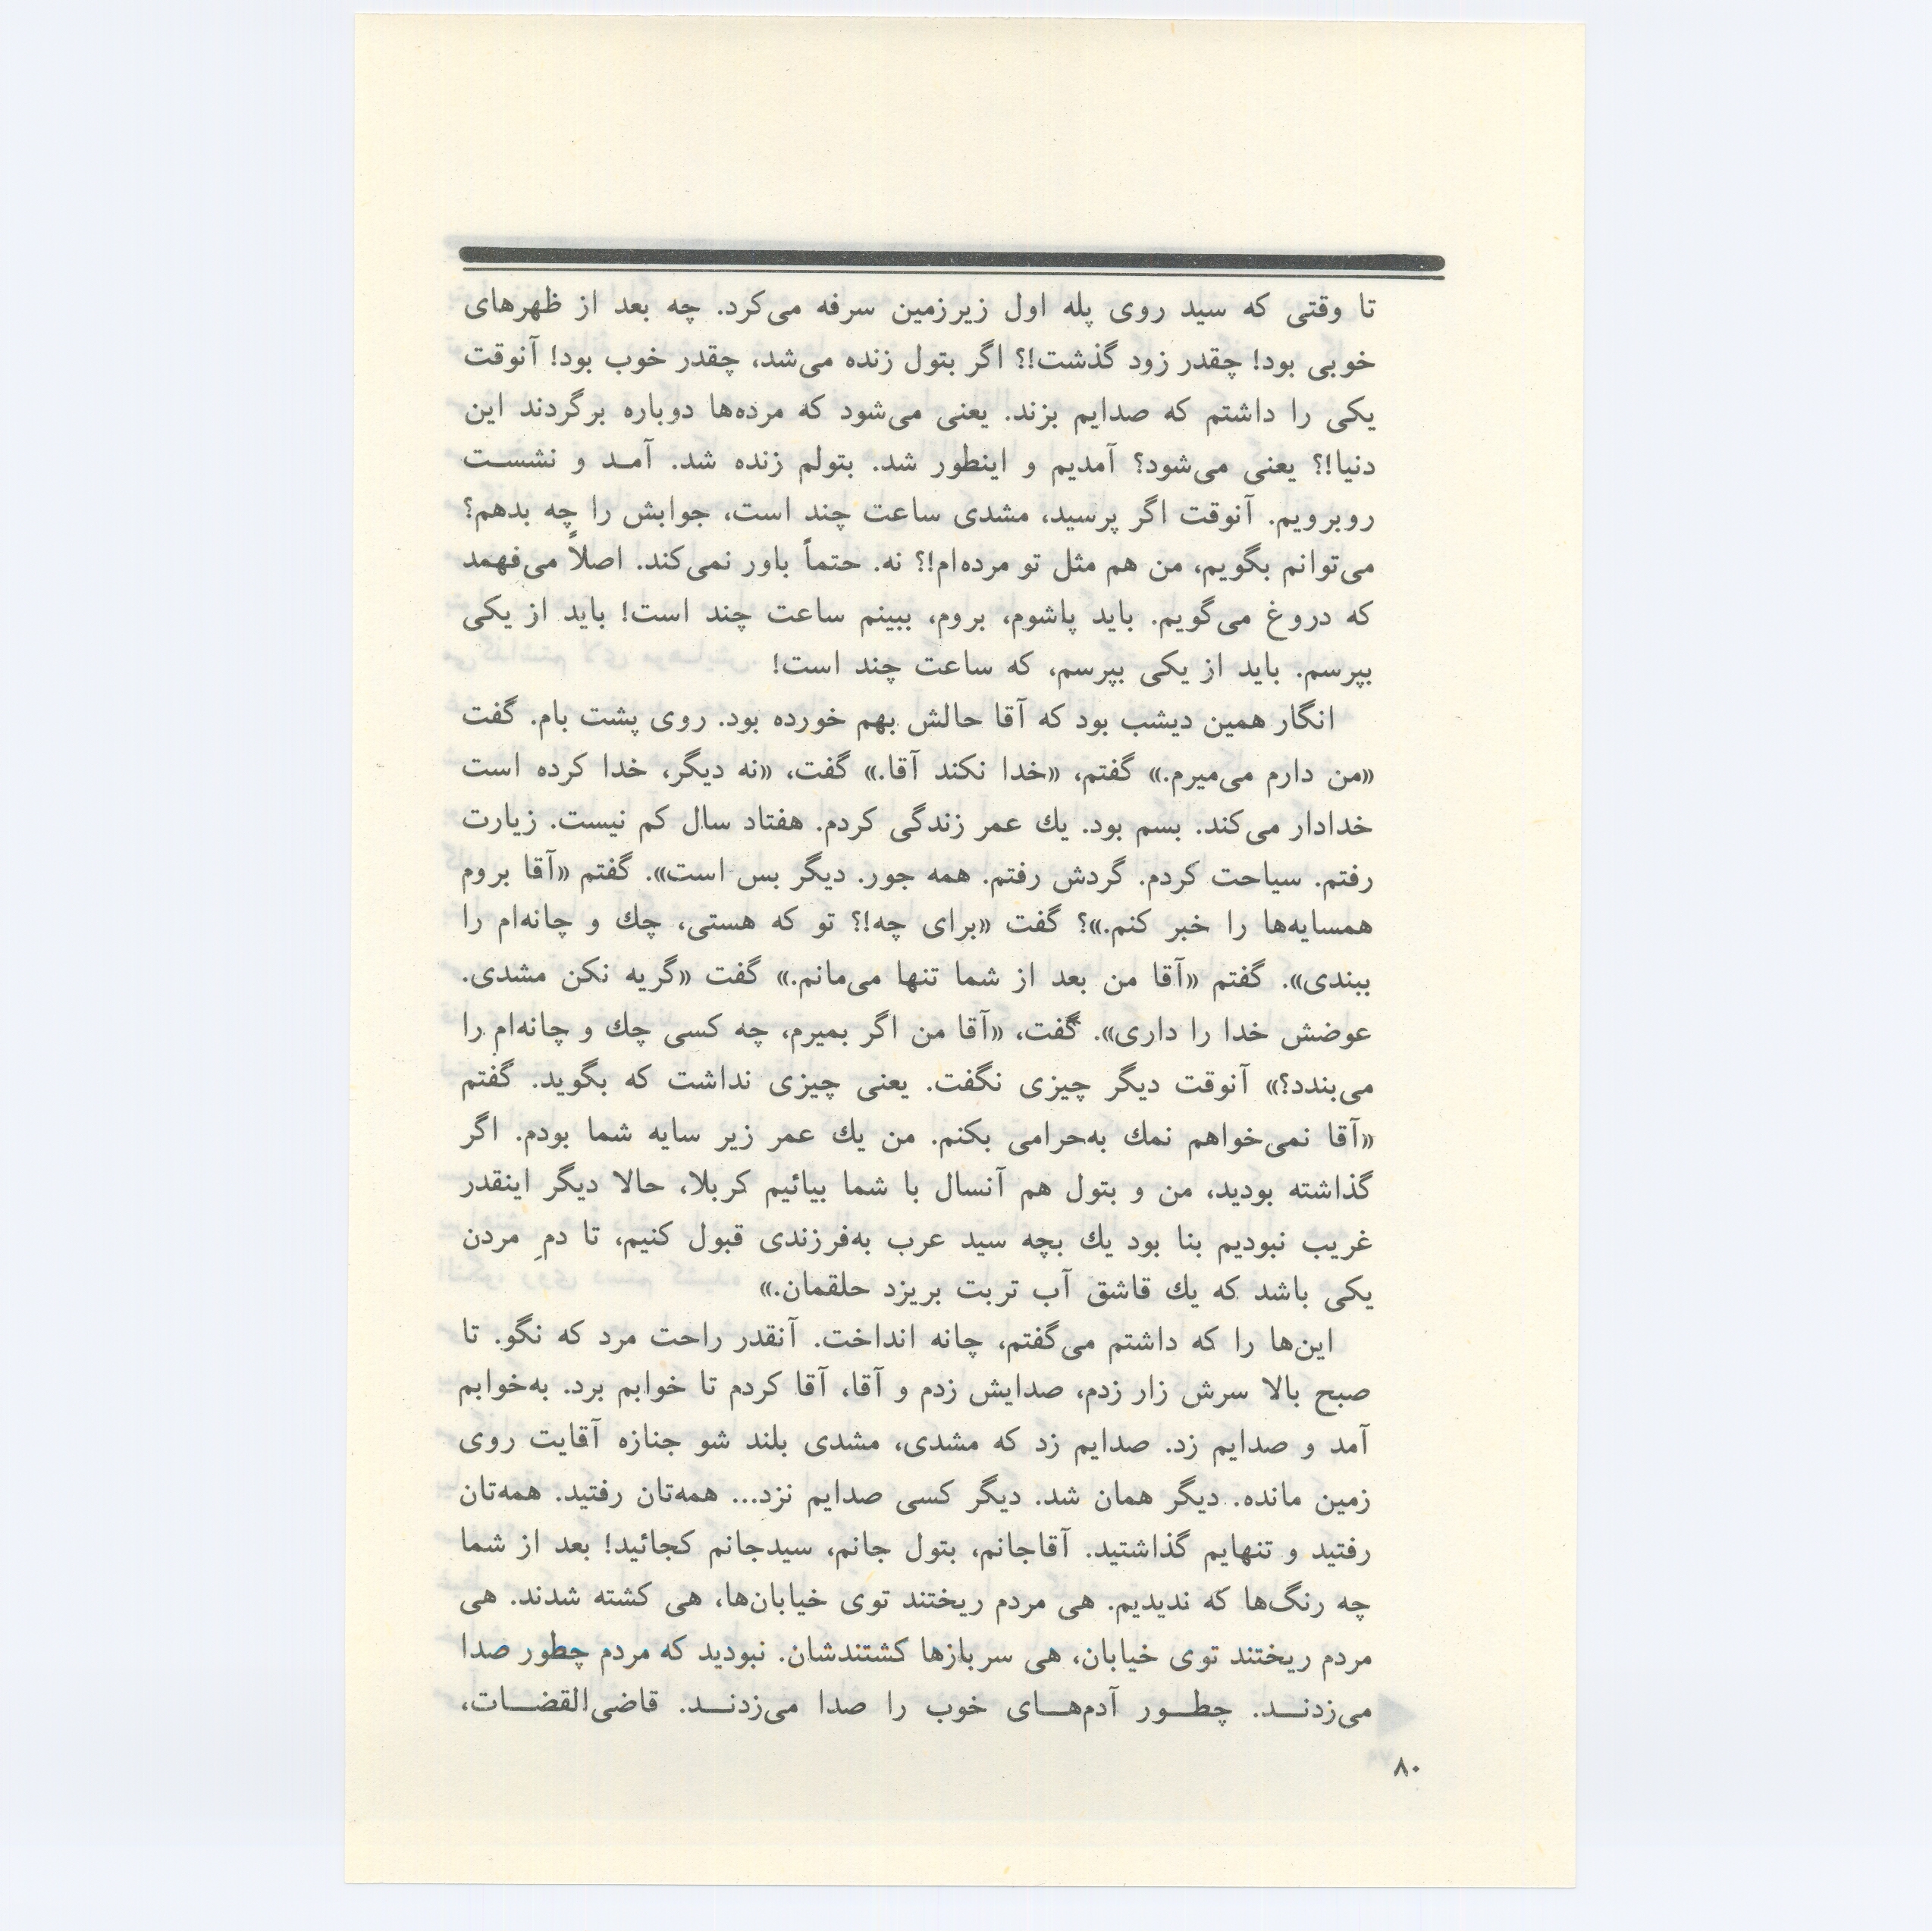 تا وقتی که سید روی پله اول زیرزمین سرفه می‌کرد. چه بعد از ظهرهای
خوبی بود! چقدر زود گذشت!؟ اگر بتول زنده می‌شد، چقدر خوب بود! آنوقت
یکی را داشتم که صدایم بزند. یعنی می‌شود که مرده‌ها دوباره برگردند این
دنیا!؟ یعنی می‌شود؟ آمدیم و اینطور شد. بتولم زنده شد. آمـد و نشسـت
روبرویم. آنوقت اگر پرسید، مشدی ساعت چند است، جوابش را چه بدهم؟
می‌توانم بگویم، من هم مثل تو مرده‌ام!؟ نه. حتماً باور نمی‌کند. اصلاً می‌فهمد
که دروغ می‌گویم. باید پاشوم، بروم، ببینم ساعت چند است! باید از یکی
بپرسم. باید از یکی بپرسم، که ساعت چند است!
انگار همین دیشب بود که آقا حالش بهم خورده بود. روی پشت بام. گفت
«من دارم می‌میرم.» گفتم، «خدا نکند آقا.» گفت، «نه دیگر، خدا کرده است
خدادار می‌کند. بسم بود. یك عمر زندگی کردم. هفتاد سال کم نیست. زیارت
رفتم. سیاحت کردم. گردش رفتم. همه جور. دیگر بس است». گفتم «آقا بروم
همسایه‌ها را خبر کنم.»؟ گفت «برای چه!؟ تو که هستی، چك و چانه‌ام را
ببندی». گفتم «آقا من بعد از شما تنها می‌مانم.» گفت «گریه نکن مشدی.
عوضش خدا را داری». گفت، «آقا من اگر بمیرم، چه کسی چك و چانه‌ام را
می‌بندد؟» آنوقت دیگر چیزی نگفت. یعنی چیزی نداشت که بگوید. گفتم
«آقا نمی‌خواهم نمك به‌حرامی بکنم. من یك عمر زیر سایه شما بودم. اگر
گذاشته بودید، من و بتول هم آنسال با شما بیائیم کربلا، حالا دیگر اینقدر
غریب نبودیم بنا بود یك بچه سید عرب به‌فرزندی قبول کنیم، تا دمِ مردن
یکی باشد که یك قاشق آب تربت بریزد حلقمان.»
این‌ها را که داشتم می‌گفتم، چانه انداخت. آنقدر راحت مرد که نگو. تا
صبح بالا سرش زار زدم، صدایش زدم و آقا، آقا کردم تا خوابم برد. به‌خوابم
آمد و صدایم زد. صدایم زد که مشدی، مشدی بلند شو جنازه آقایت روی
زمین مانده. دیگر همان شد. دیگر کسی صدایم نزد... همه‌تان رفتید. همه‌تان
رفتید و تنهایم گذاشتید. آقاجانم، بتول جانم، سیدجانم کجائید! بعد از شما
چه رنگ‌ها که ندیدیم. هی مردم ریختند توی خیابان‌ها، هی کشته شدند. هی
مردم ریختند توی خیابان، هی سربازها کشتندشان. نبودید که مردم چطور صدا
می‌زدنـــد. چطـــور آدم‌هـــای خوب را صدا می‌زدنـــد. قاضی‌القضـــات،
۸۰